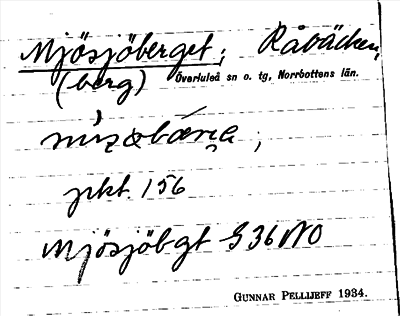 Mjösjöberget; Råbäcken,
(berg) Överluleå sn o. tg, Norrbottens län.
pkt. 156
Mjösjöbgt G36NO
GUNNAR PELLIJEFF 1934.